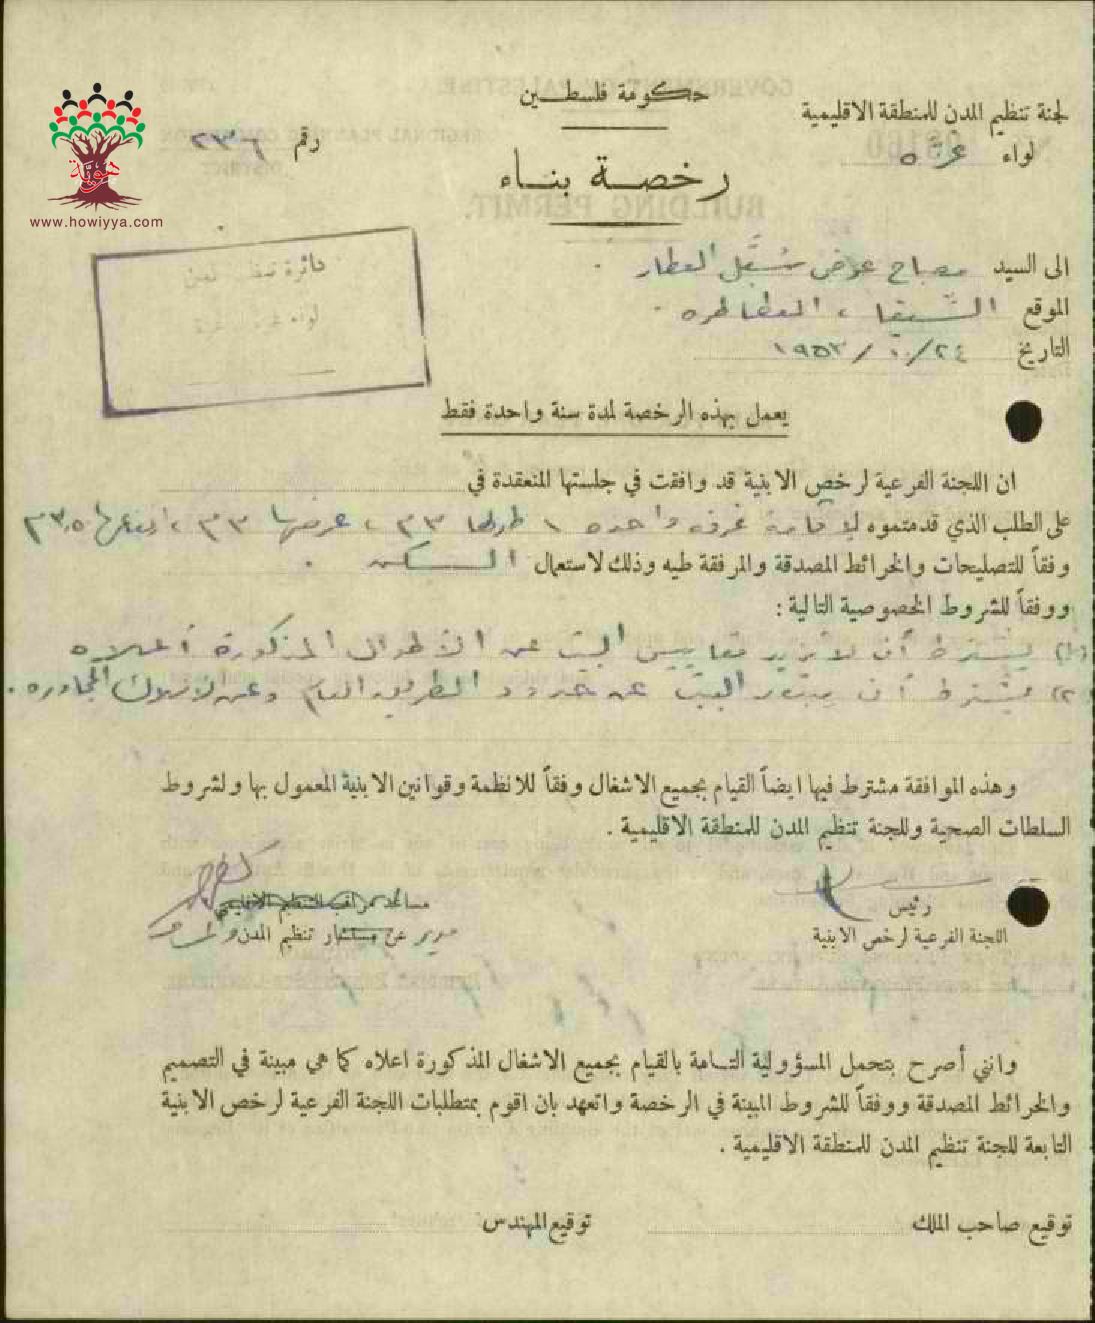 حكومة فلسطين
لجنة تنظيم المدن للمنطقة الاقليمية
لواء غزه
رقم ٢٣٦
رخصة بناء
هوية
www.howiyya.com
دائرة تنظيم المدن
لواء غزة
الى السيد مصباح عوض العطار
الموقع السيفا ، العطاطره .
التاريخ ٢٤/١٠/١٩٥٣
يعمل بهذه الرخصة لمدة سنة واحدة فقط
ان اللجنة الفرعية لرخص الابنية قد وافقت في جلستها المنعقدة في
على الطلب الذي قدمتموه لاقامة غرفه واحده ١ طولها ٣٣ ، عرضها ٣٣ ، ارتفاعها ٣٣٫٥
وفقاً للتصليحات والخرائط المصدقة والمرفقة طيه وذلك لاستعمال السكن .
ووفقاً للشروط الخصوصية التالية :
(١) يشترط أن لا تزيد مقاييس البيت عن الأطوال المذكورة أعلاه
(٢) يشترط أن يبتعد البيت عن حدود الطريق العام وعن الاملاك المجاوره .
وهذه الموافقة مشترط فيها ايضاً القيام بجميع الاشغال وفقاً للانظمة وقوانين الابنية المعمول بها ولشروط
السلطات الصحية وللجنة تنظيم المدن للمنطقة الاقليمية .
رئيس
اللجنة الفرعية لرخص الابنية
مدير عن مستشار تنظيم المدن
وانني أصرح بتحمل المسؤولية التامة بالقيام بجميع الاشغال المذكورة اعلاه كما هي مبينة في التصميم
والخرائط المصدقة ووفقاً للشروط المبينة في الرخصة واتعهد بان اقوم بمتطلبات اللجنة الفرعية لرخص الابنية
التابعة للجنة تنظيم المدن للمنطقة الاقليمية .
توقيع صاحب الملك
توقيع المهندس